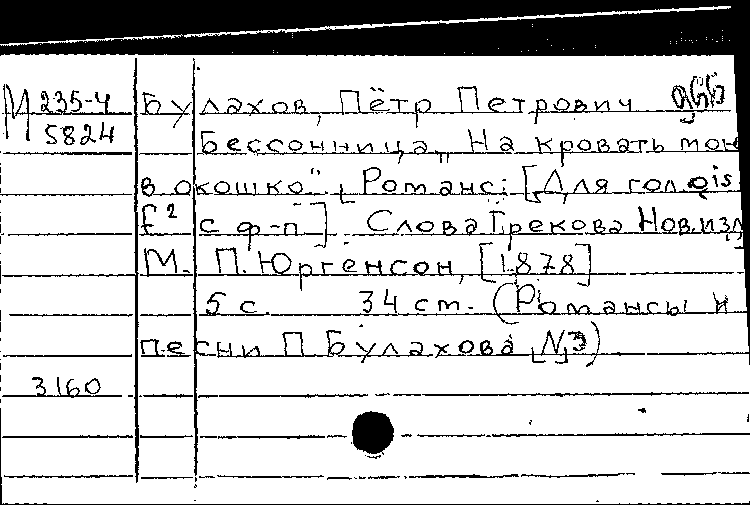 М 235-4 Булахов, Пётр Петрович
5824 Бессонница „На кровать мою
в окошко". Романс: [Для гол. gis
f² с ф-п]. Слова Грекова Нов. изд
М. П. Юргенсон, [1878]
5 с. 34 см. (Романсы и
песни П Булахова, №3)
3160